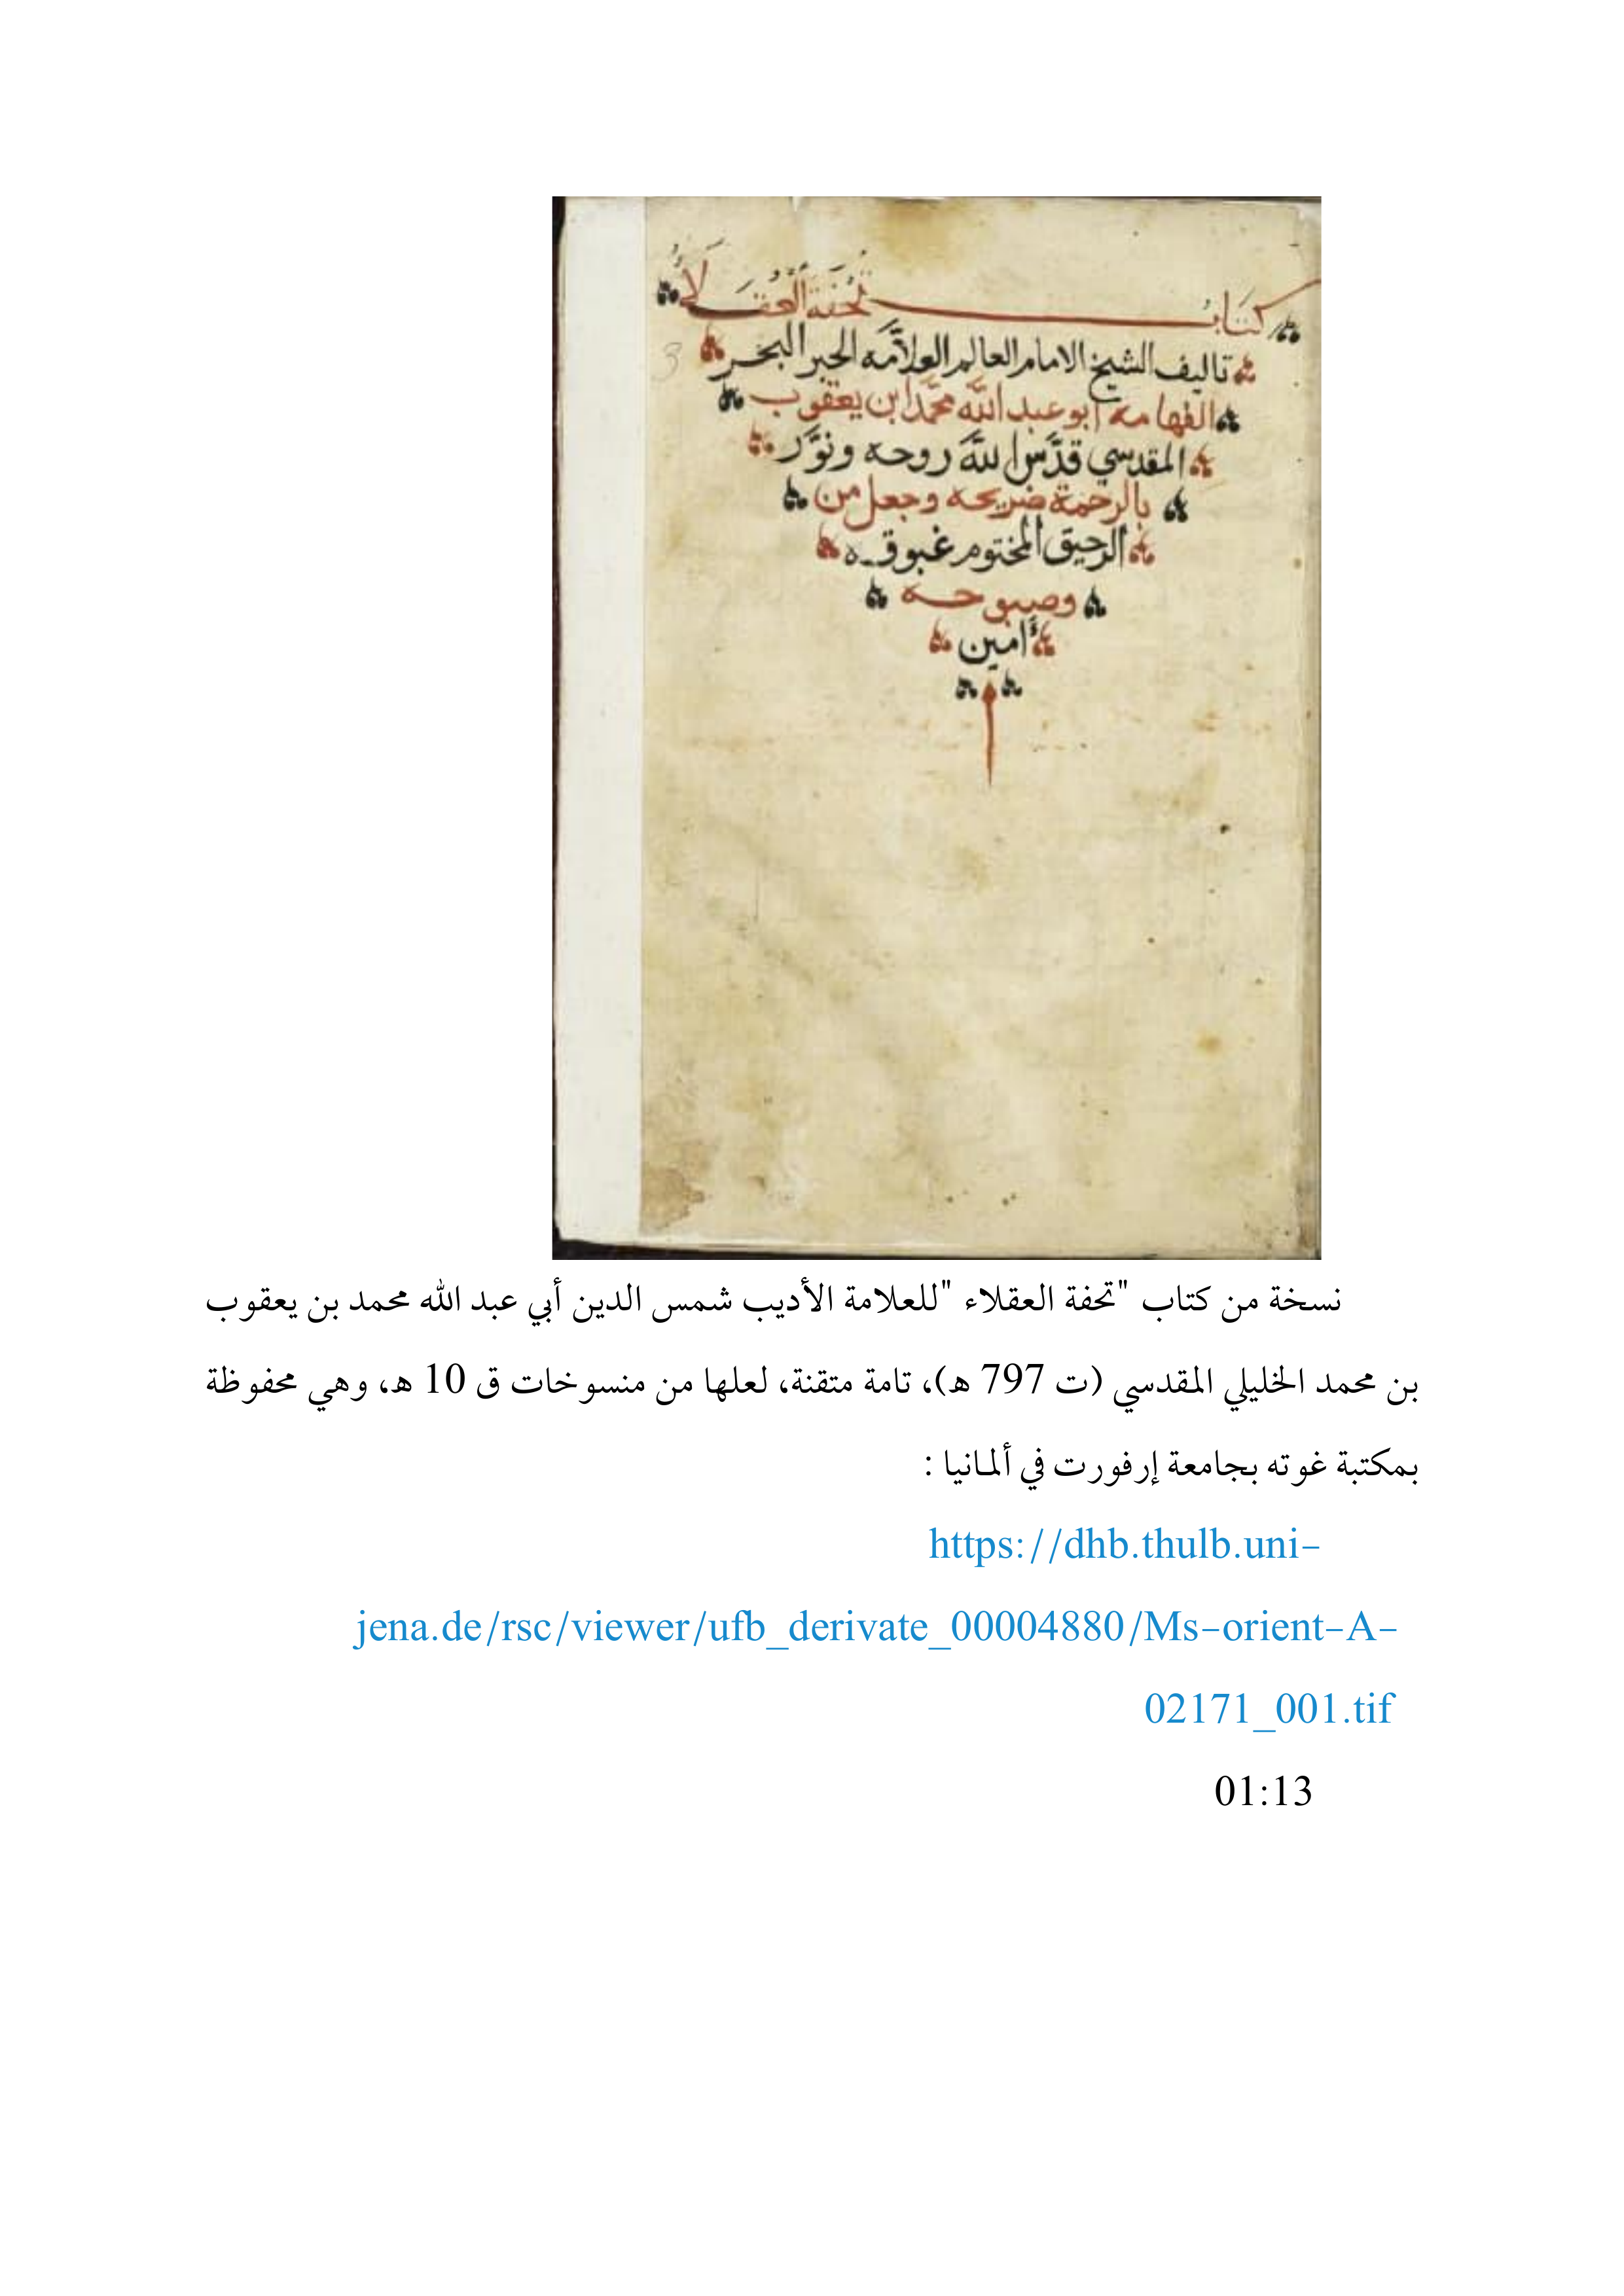 كتاب تحفة العقلاء
تاليف الشيخ الامام العالم العلامه الحبر البحر
الفهامه ابو عبد الله محمد ابن يعقوب
المقدسي قدس الله روحه ونور
بالرحمة ضريحه وجعل من
الرحيق المختوم غبوقه
وصبوحه
امين
3
نسخة من كتاب "تحفة العقلاء "للعلامة الأديب شمس الدين أبي عبد الله محمد بن يعقوب
بن محمد الخليلي المقدسي (ت 797 هـ)، تامة متقنة، لعلها من منسوخات ق 10 هـ، وهي محفوظة
بمكتبة غوته بجامعة إرفورت في ألمانيا :
https://dhb.thulb.uni-
jena.de/rsc/viewer/ufb_derivate_00004880/Ms-orient-A-
02171_001.tif
01:13